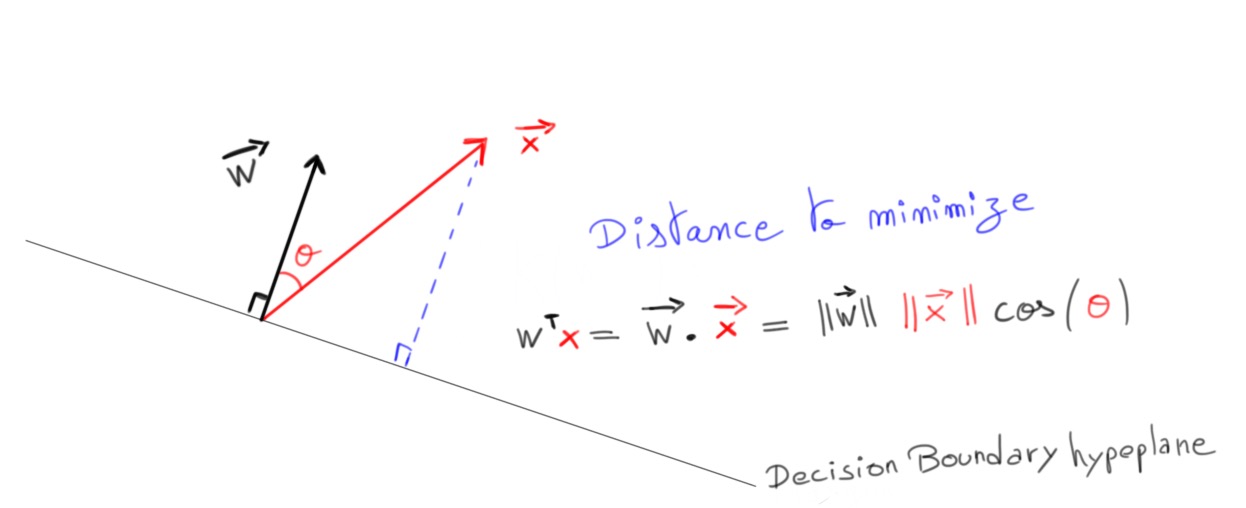 w⃗
x⃗
θ
Distance to minimize
wᵀx = w⃗ . x⃗ = ||w⃗|| ||x⃗|| cos(θ)
Decision Boundary hypeplane